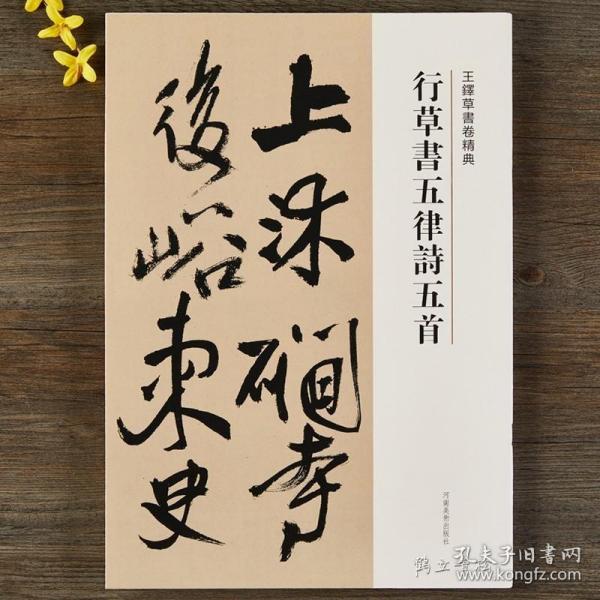 王鐸草書卷精典
行草書五律詩五首
上沐磵寺
後峪東史
河南美術出版社
孔夫子旧书网
www.kongfz.com